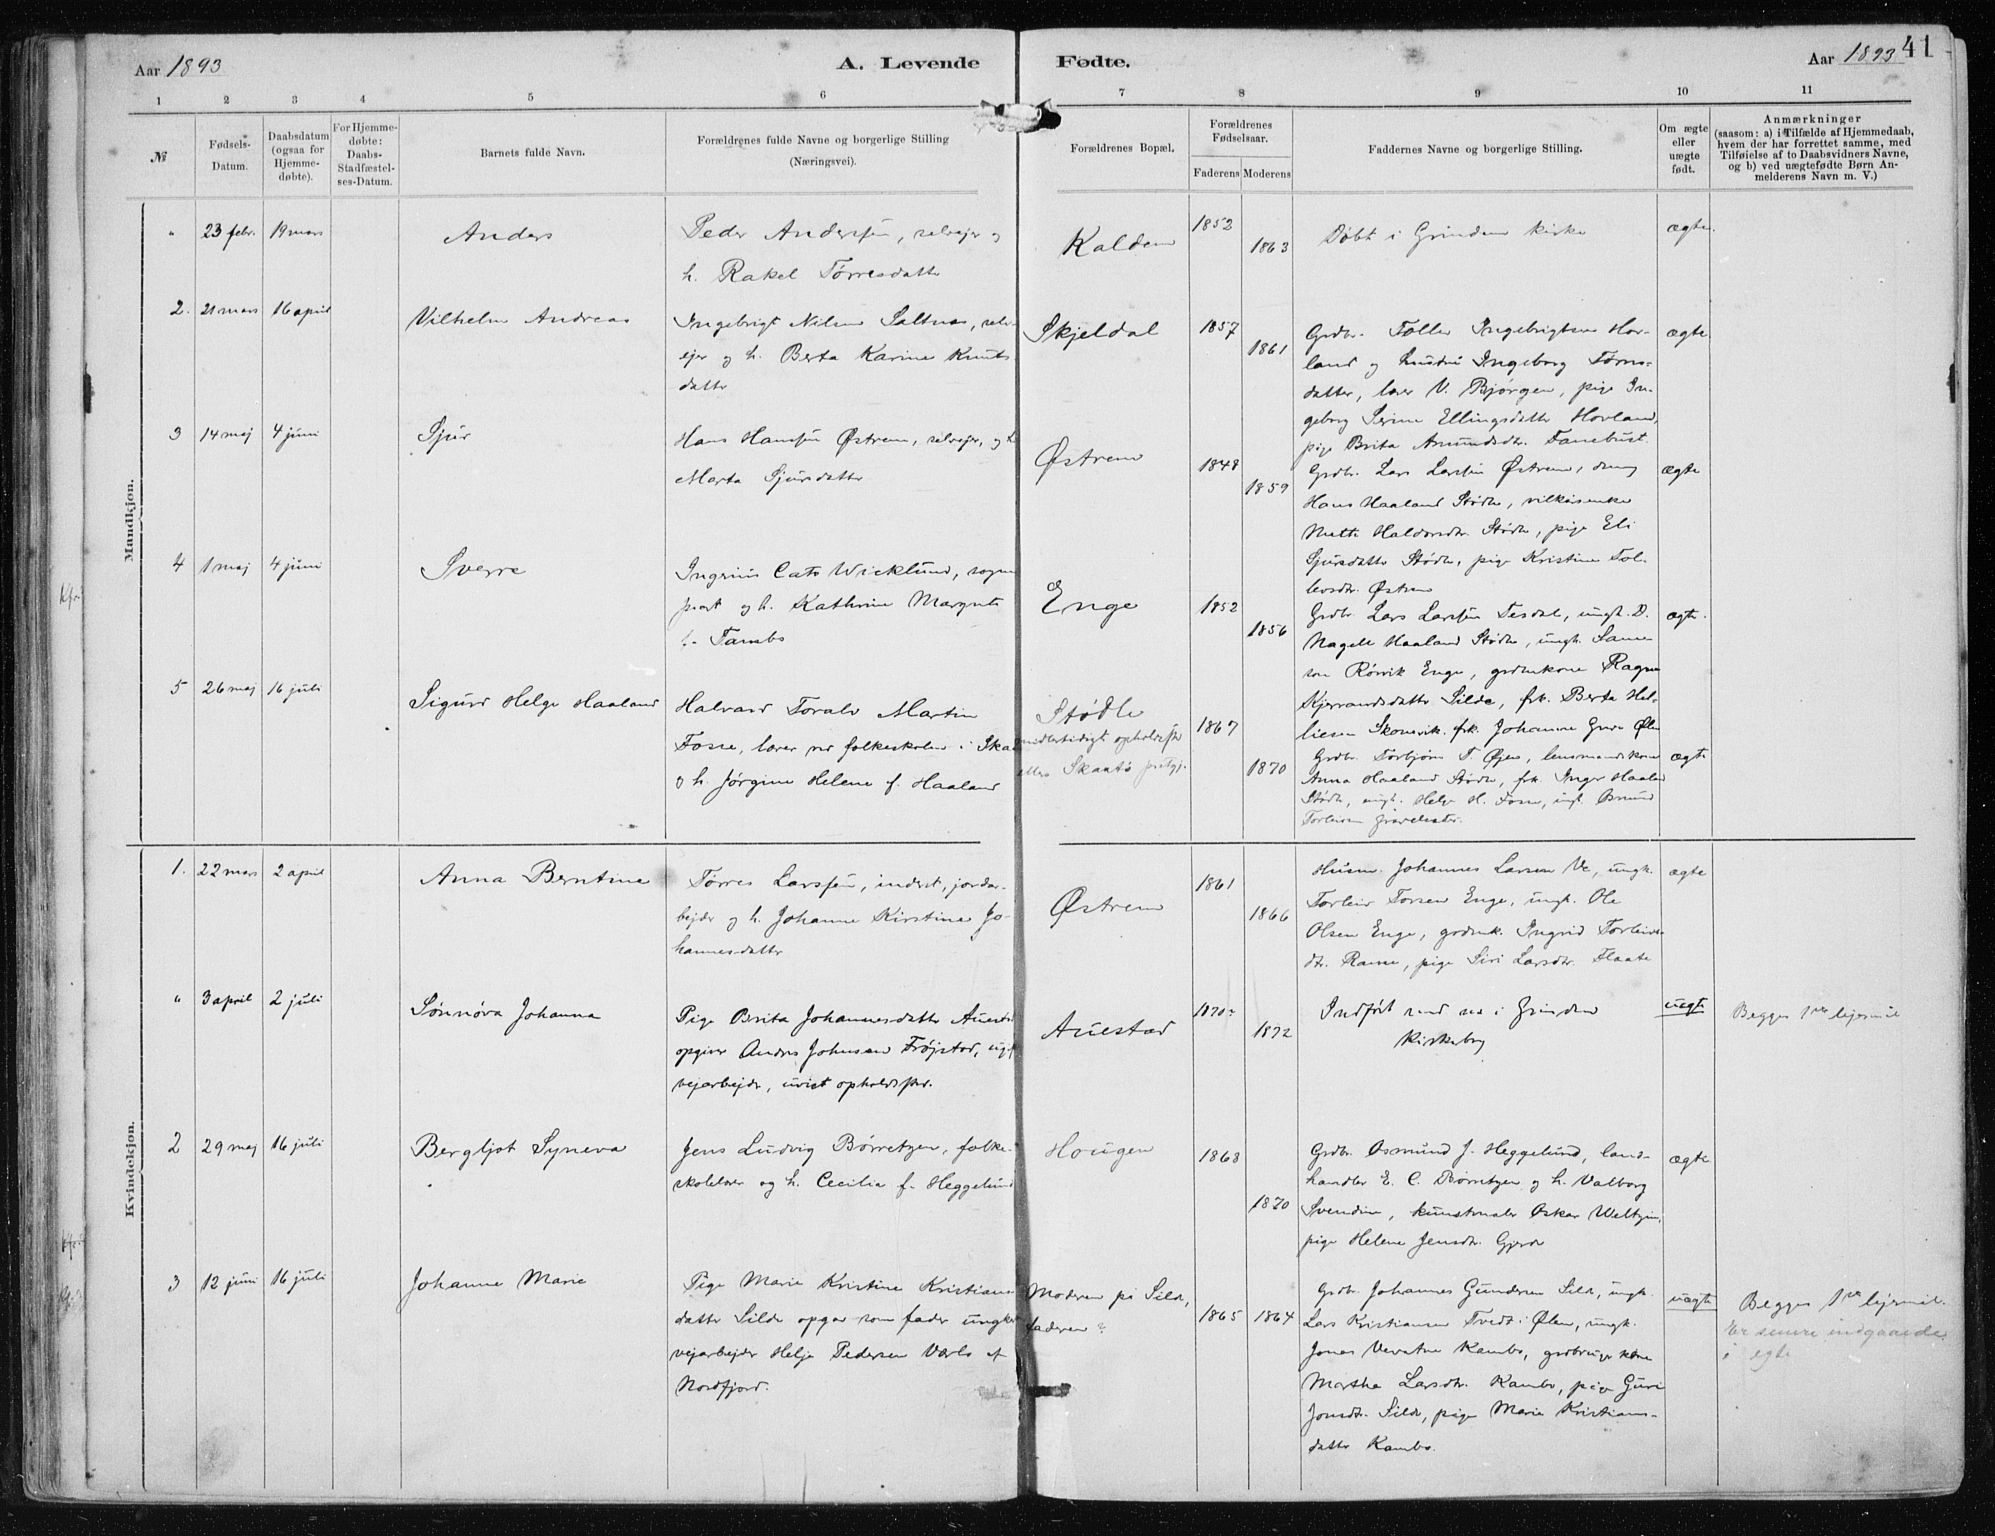 Aar 1893
A. Levende
Fødte.
Aar 1893
41
1 2 3 4 5 6 7 8 9 10 11
№
Fødsels-
Datum.
Daabsdatum
(ogsaa for
Hjemme-
døbte).
For Hjemme-
døbte:
Daabs-
Stadfæstel-
ses-Datum.
Barnets fulde Navn.
Forældrenes fulde Navne og borgerlige Stilling
(Næringsvei).
Forældrenes Bopæl,
Forældrenes
Fødselsaar.
Faderens Moderens
Faddernes Navne og borgerlige Stilling.
Om ægte
eller
uægte
født.
Anmærkninger
(saasom: a) i Tilfælde af Hjemmedaab,
hvem der har forrettet samme, med
Tilføielse af to Daabsvidners Navne,
og b) ved uægtefødte Børn An-
melderens Navn m. V.)
Mandkjøn.
" 23 febr. 19 mars Anders
Peder Anderssen, selvejer og
h. Rakel Tørresdatter
Kaldem 1852 1863
Døbt i Grindem kirke
ægte.
2. 21 mars 16 april Vilhelm Andreas
Ingebrigt Nilsen Saltnes, selv-
ejer og h. Berta Karine Knuts
datter
Skjeldal 1857 1861
Grdbr. Tollev Ingebrigtsen Hov-
land og hustru Ingeborg
datter, lærer V. Bjørgen, pige In-
geborg Serine Ellingsdatter Hovland,
pige Brita Amundsdtr. Fanebust.
ægte
3 14 maj 4 juni Sjur
Hans Hanssen Østrem, selvejer, og h.
Marta Sjursdatter
Østrem 1848 1859
Grdbr. Lars Larssen Østrem, dreng
Hans Haaland Stødle, vilkårsenke
Mette Haldorsdtr. Stødle, pige Eli
Sjursdatter Stødle, pige Kristine Tol-
levsdtr. Østrem
ægte
4 1 maj 4 juni Sverre
Cato Wicklund, sogne
prest og h. Kathrine Margrete
f. Tambs
Enge 1852 1856
Grdbr. Lars Larssen Tesdal, ungk. D.
Nagell Haaland Stødle, ungk. Samu
son Rørvik Enge, grdmkone Ragna
Kjerrandsdatter Silde, frk. Berta Hel-
liesen Skonevik. frk. Johanne Ølen
ægte.
5 26 maj 16 juli Sigurd Helge Haaland
Halvard Toralv Martin
Fosse, lærer ved folkeskolen i Skaa
og h. Jørgine Helene f. Haaland
Stødle
midlertidigt opholdsted
ellers Skaatø prstgj.
1867 1870
Grdbr. Torbjørn T. Øyen, lensmandskone
Anna Haaland Stødle, frk. Inger Haaland
Stødle, ungk. Helge H. Fosse, ungk.
Torleivsen
ægte
Kvindekjøn.
1. 22 mars 2 april Anna Berntine
Tørres Larssen, inderst, jordar-
bejder og h. Johanne Kirstine Jo-
hannesdatter
Østrem 1861 1866
Husm. Johannes Larsen Ve, ungk.
Torleiv Torsen Enge, ungk. Ole
Olsen Enge, grdmk. Ingrid Torleivs-
dtr. Ramse, pige Siri Larsdtr. Flaate
ægte
" 3 april 2 juli Sønnøva Johanna
Pige Brita Johannesdatter Auestad
opgiver Andres Johnsen Frøjstad, ugift
vejarbejder, uvist opholdsted.
Auestad 1870? 1872
Indført med no i Grindem
kirkebog
uægte
Begges 1ste lejermål
2 29 maj 16 juli Bergljot Syneva
Jens Ludvig Børretzen, folke-
skolelærer og h. Cecilia f. Heggelund
Hougen 1868 1870
Grdbr. Osmund J. Heggelund, land-
handler E. C. Børretzen og h. Valborg
Svendine, kunstmaler Oskar Weltzin,
pige Helene Jensdtr. Gjerde
ægte
3 12 juni 16 juli Johanne Marie
Pige Marie Kristine Kristians-
datter Silde opgav som fader ungkar
vejarbejder Helje Pedersen Varlo af
Nordfjord.
Moderen på Silde,
faderen?
1865 1864
Grdbr. Johannes Gundersen Silde, ungk.
Lars Kristiansen Tvedt i Ølen, ungk.
Jonas Vevatne Kambo, grdbruger kone
Martha Larsdtr. Kambo, pige Guri
Jonsdtr. Silde, pige Marie Kristians-
datter Kambo.
uægte
Begges 1ste lejermål.
Er senere indgaaede
i egte